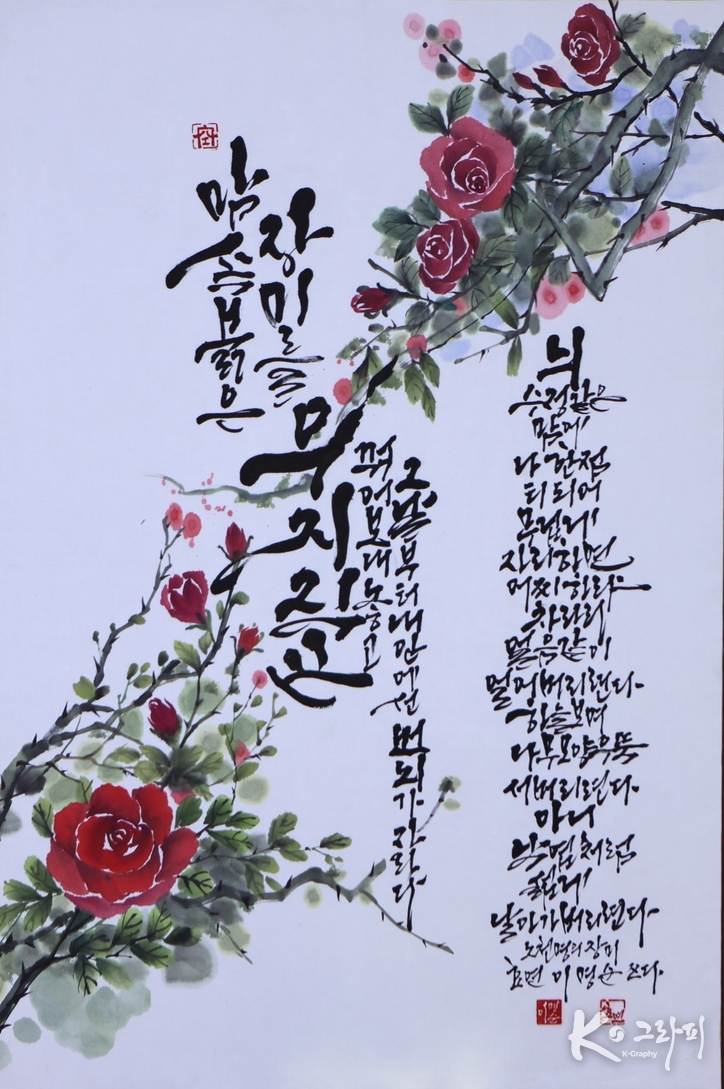 맘속붉은
장미를
우지직끈
꺾어보내놓고
그날부터내안에선 번뇌가 자라다
늬
수정같은
맘에
나 한점
티되어
무겁게
자리하면
어찌하랴
차라리
얼음같이
얼어버리련다.
하늘보며
나무모양우뚝
서버리련다.
아니
낙엽처럼
섧게
날아가버리련다.
노천명의장미
이명순 쓰다.
K그라피
K-Graphy